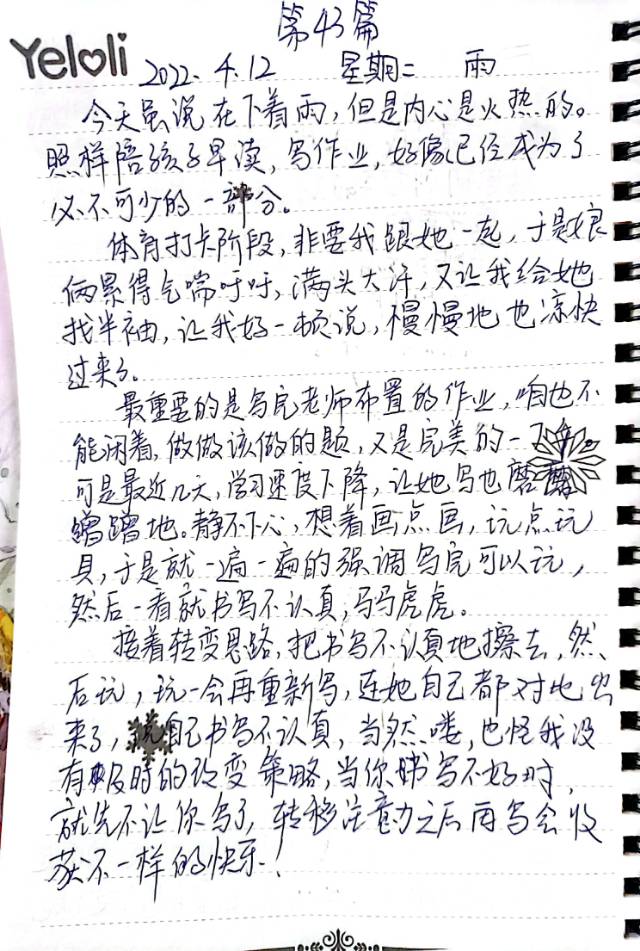 第43篇
Yeloli
2022.4.12 星期二 雨
今天虽说在下着雨,但是内心是火热的。
照样陪孩子早读,写作业,好像已经成为了
必不可少的一部分。
体育打卡阶段,非要我跟她一起,于是娘
俩累得气喘吁吁,满头大汗,又让我给她
找半袖,让我好一顿说,慢慢地也凉快
过来了。
最重要的是写完老师布置的作业,咱也不
能闲着,做做该做的题,又是完美的一
可是最近几天,学习速度下降,让她写也磨磨
蹭蹭地。静不下心,想着画点画,玩点玩
具,于是就一遍一遍的强调写完可以玩,
然后一看就书写不认真,马马虎虎。
接着转变思路,把书写不认真地擦去,然
后玩,玩一会再重新写,连她自己都对比出
来了,说自己书写不认真,当然喽,也怪我没
有及时的改变策略,当你书写不好时,
就先不让你写了,转移注意力之后再写会收
获不一样的快乐!